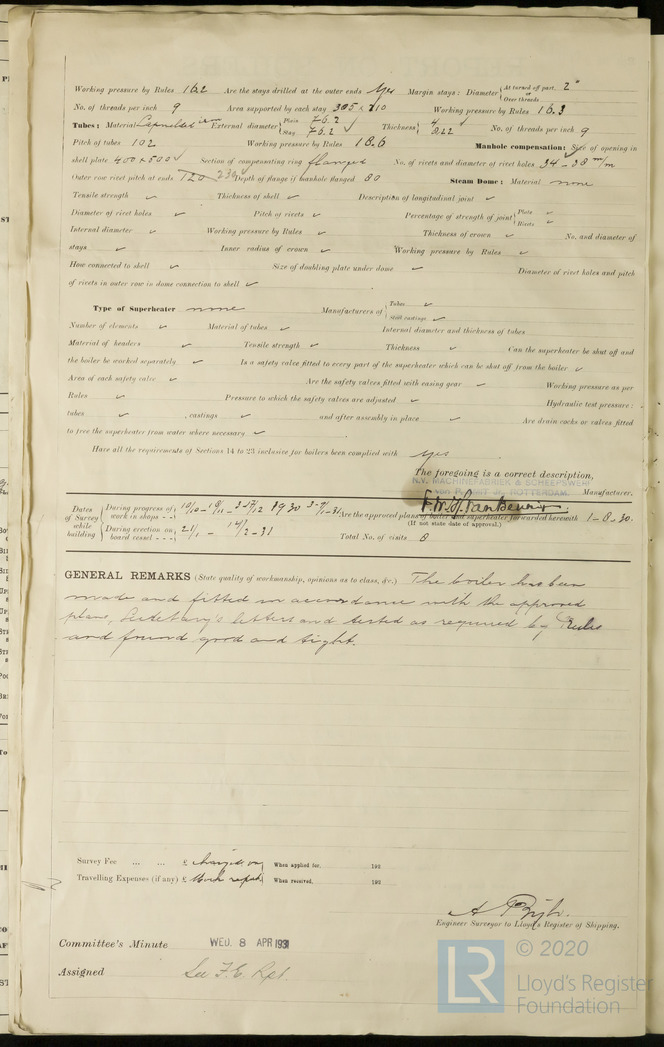 Working pressure by Rules 16.2 Are the stays drilled at the outer ends Yes Margin stays: Diameter { At turned off part, 2" or Over threads
No. of threads per inch 9 Area supported by each stay 305 x 210 Working pressure by Rules 16.3
Tubes: Material iron External diameter { Plain 76.2 Stay 76.2 ✓ Thickness { 4 ✓ No. of threads per inch 9
Pitch of tubes 102 Working pressure by Rules 18.6 Manhole compensation: Size of opening in
shell plate 400 x 500 ✓ Section of compensating ring flanged No. of rivets and diameter of rivet holes 34 - 28 m/m
Outer row rivet pitch at ends 120 239 Depth of flange if manhole flanged 80 Steam Dome: Material none
Tensile strength ✓ Thickness of shell ✓ Description of longitudinal joint ✓
Diameter of rivet holes ✓ Pitch of rivets ✓ Percentage of strength of joint { Plate ✓ Rivets ✓
Internal diameter ✓ Working pressure by Rules ✓ Thickness of crown ✓ No. and diameter of
stays ✓ Inner radius of crown ✓ Working pressure by Rules ✓
How connected to shell ✓ Size of doubling plate under dome ✓ Diameter of rivet holes and pitch
of rivets in outer row in dome connection to shell ✓
Type of Superheater none Manufacturers of { Tubes ✓ Steel castings ✓
Number of elements ✓ Material of tubes ✓ Internal diameter and thickness of tubes
Material of headers ✓ Tensile strength ✓ Thickness ✓ Can the superheater be shut off and
the boiler be worked separately ✓ Is a safety valve fitted to every part of the superheater which can be shut off from the boiler ✓
Area of each safety valve ✓ Are the safety valves fitted with easing gear ✓ Working pressure as per
Rules ✓ Pressure to which the safety valves are adjusted ✓ Hydraulic test pressure:
tubes ✓ , castings ✓ and after assembly in place ✓ Are drain cocks or valves fitted
to free the superheater from water where necessary ✓
Have all the requirements of Sections 14 to 23 inclusive for boilers been complied with Yes
The foregoing is a correct description,
N.V. MACHINEFABRIEK & SCHEEPSWERF
ROTTERDAM. Manufacturer.
Dates of Survey while building { During progress of work in shops - - 1930 Are the approved plans of boiler and superheater forwarded herewith 1-8-30.
(If not state date of approval.)
During erection on board vessel - - - 21/1 - 14/2-31 Total No. of visits 8
GENERAL REMARKS (State quality of workmanship, opinions as to class, &c.) The boiler has been
made and fitted in accordance with the approved
plans, Secretary's letters and tested as required by Rules
and found good and tight.
Survey Fee ... ... £ When applied for, 192
Travelling Expenses (if any) £ When received, 192
Engineer Surveyor to Lloyd's Register of Shipping.
Committee's Minute WED. 8 APR 1931
Assigned See F.E. Rpt.
© 2020
LR Lloyd's Register
Foundation